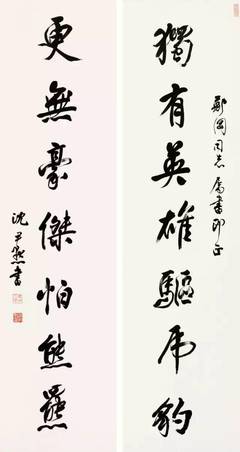 同志屬書即正
獨有英雄驅虎豹
更無豪傑怕熊羆
沈尹默書